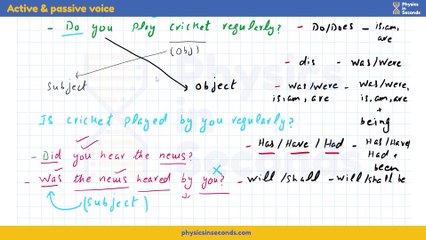 Active & passive voice
Physics in Seconds
- Do you play cricket regularly? - Do/Does - is, am, are
(Obj)
- dis - was/were
Subject object - was/were - was/were,
is, am, are is, am, are
+
being
Is cricket played by you regularly?
- Did you hear the news? - Has/Have/Had - Has/Have/
Had +
been
- Was the news heared by you? - will/shall - will/shall be
(Subject)
physicsinseconds.com